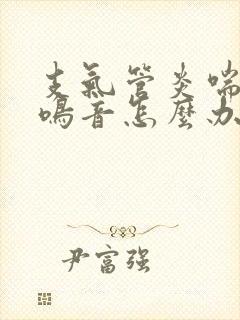 支氣管炎喘
鳴音怎麼办
尹富强